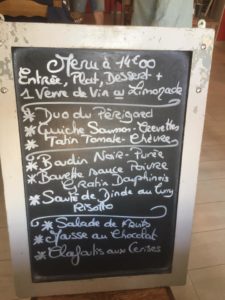 Menu à 14€00
Entrée, Plat, Dessert +
1 Verre de Vin ou Limonade
* Duo du Périgord
* Quiche Saumon-Crevettes
* Tatin Tomate-Chèvre
* Boudin Noir-Purée
* Bavette sauce Poivre
Gratin Dauphinois
* Sauté de Dinde au Curry
Risotto
* Salade de Fruits
* Mousse au Chocolat
* Clafoutis aux Cerises